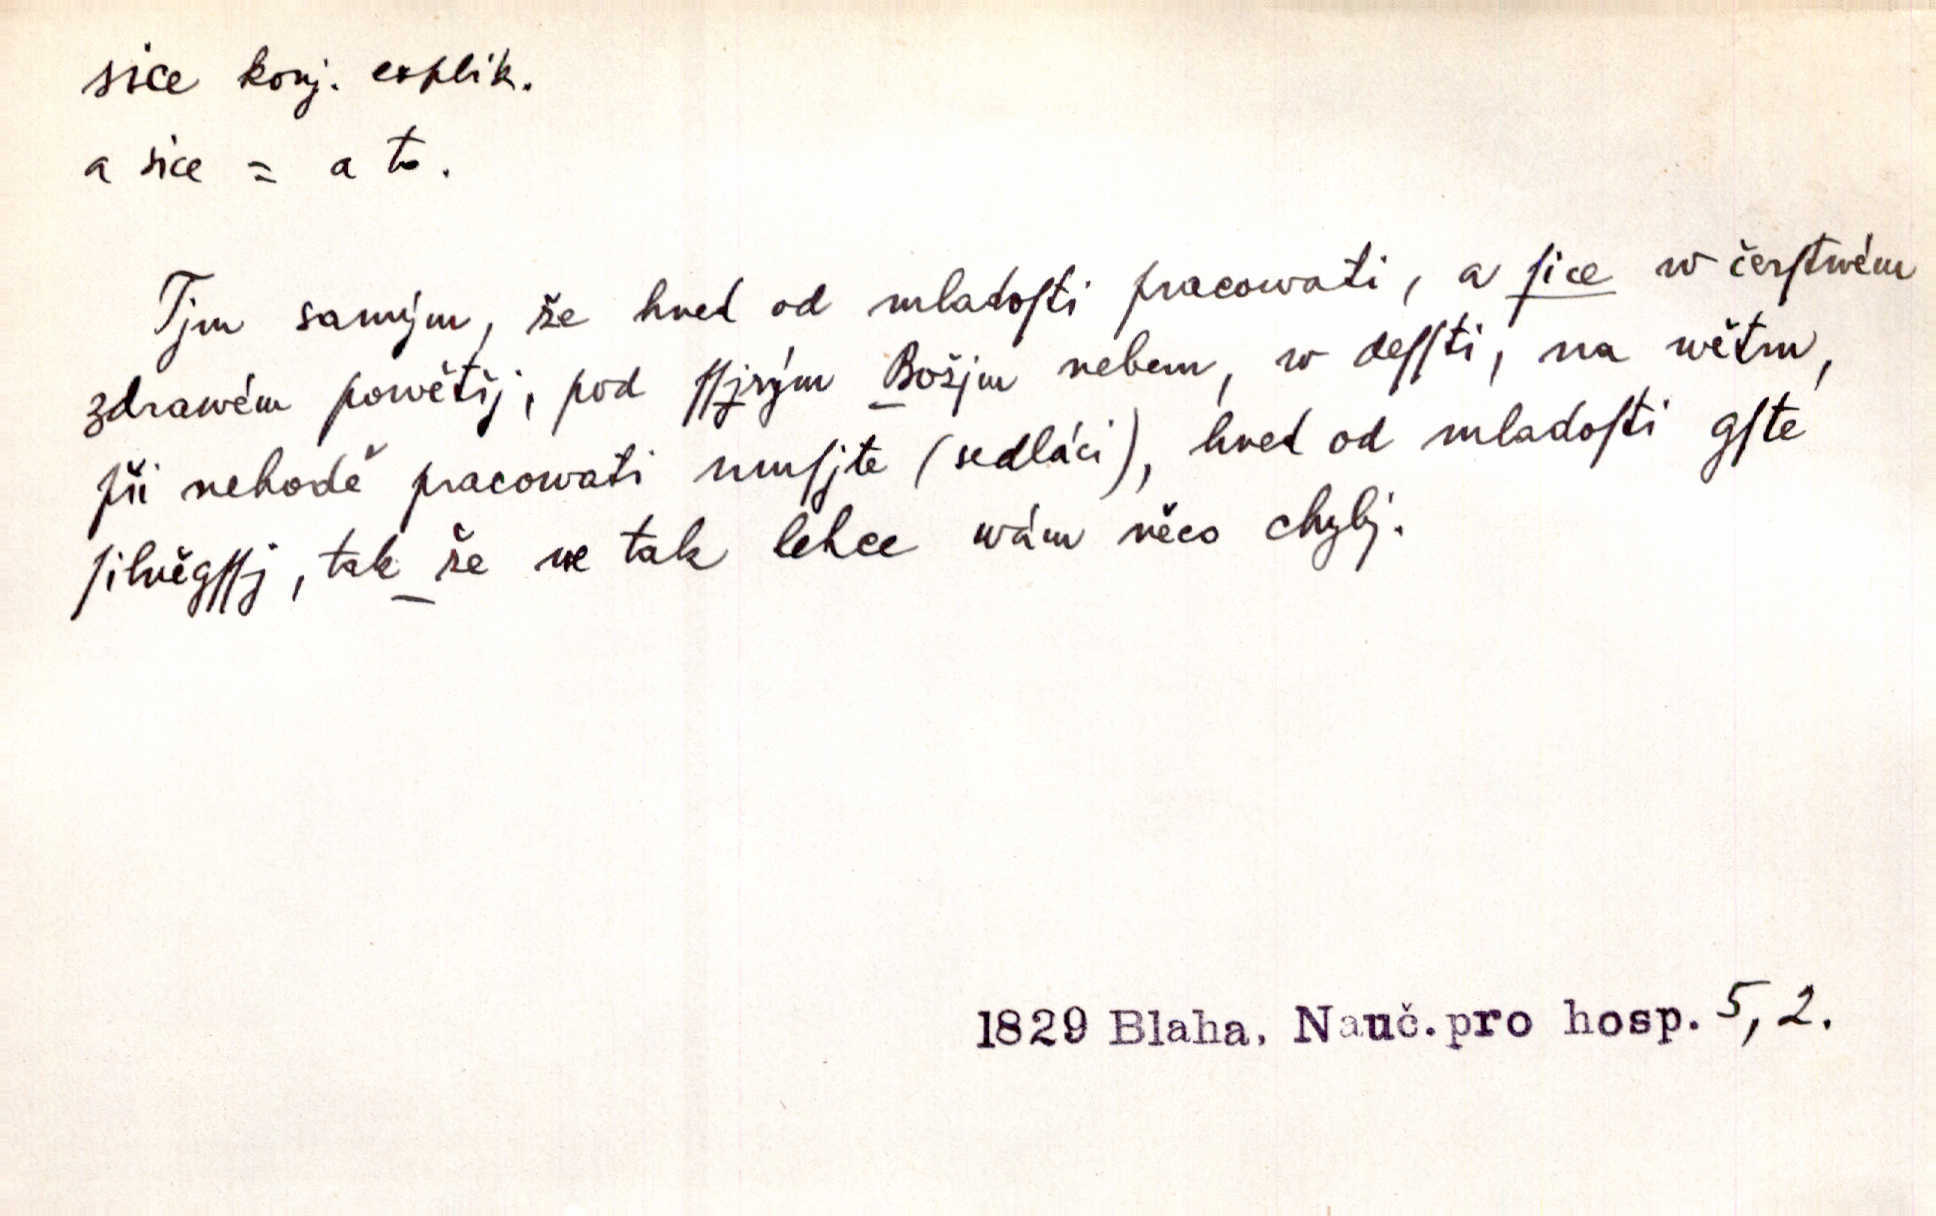 sice konj. explik.
a sice = a to.
Tjm samým, že hned od mladoſti pracowati, a ſice w čerſtwém
zdrawém powětřj, pod ſſjrým Božjm nebem, w deſſti, na wětru,
při nehodě pracowati muſjte (sedláci), hned od mladoſti gſte
ſilněgſſj, tak že ne tak lehce wám něco chybj.
1829 Blaha, Nauč. pro hosp. 5, 2.